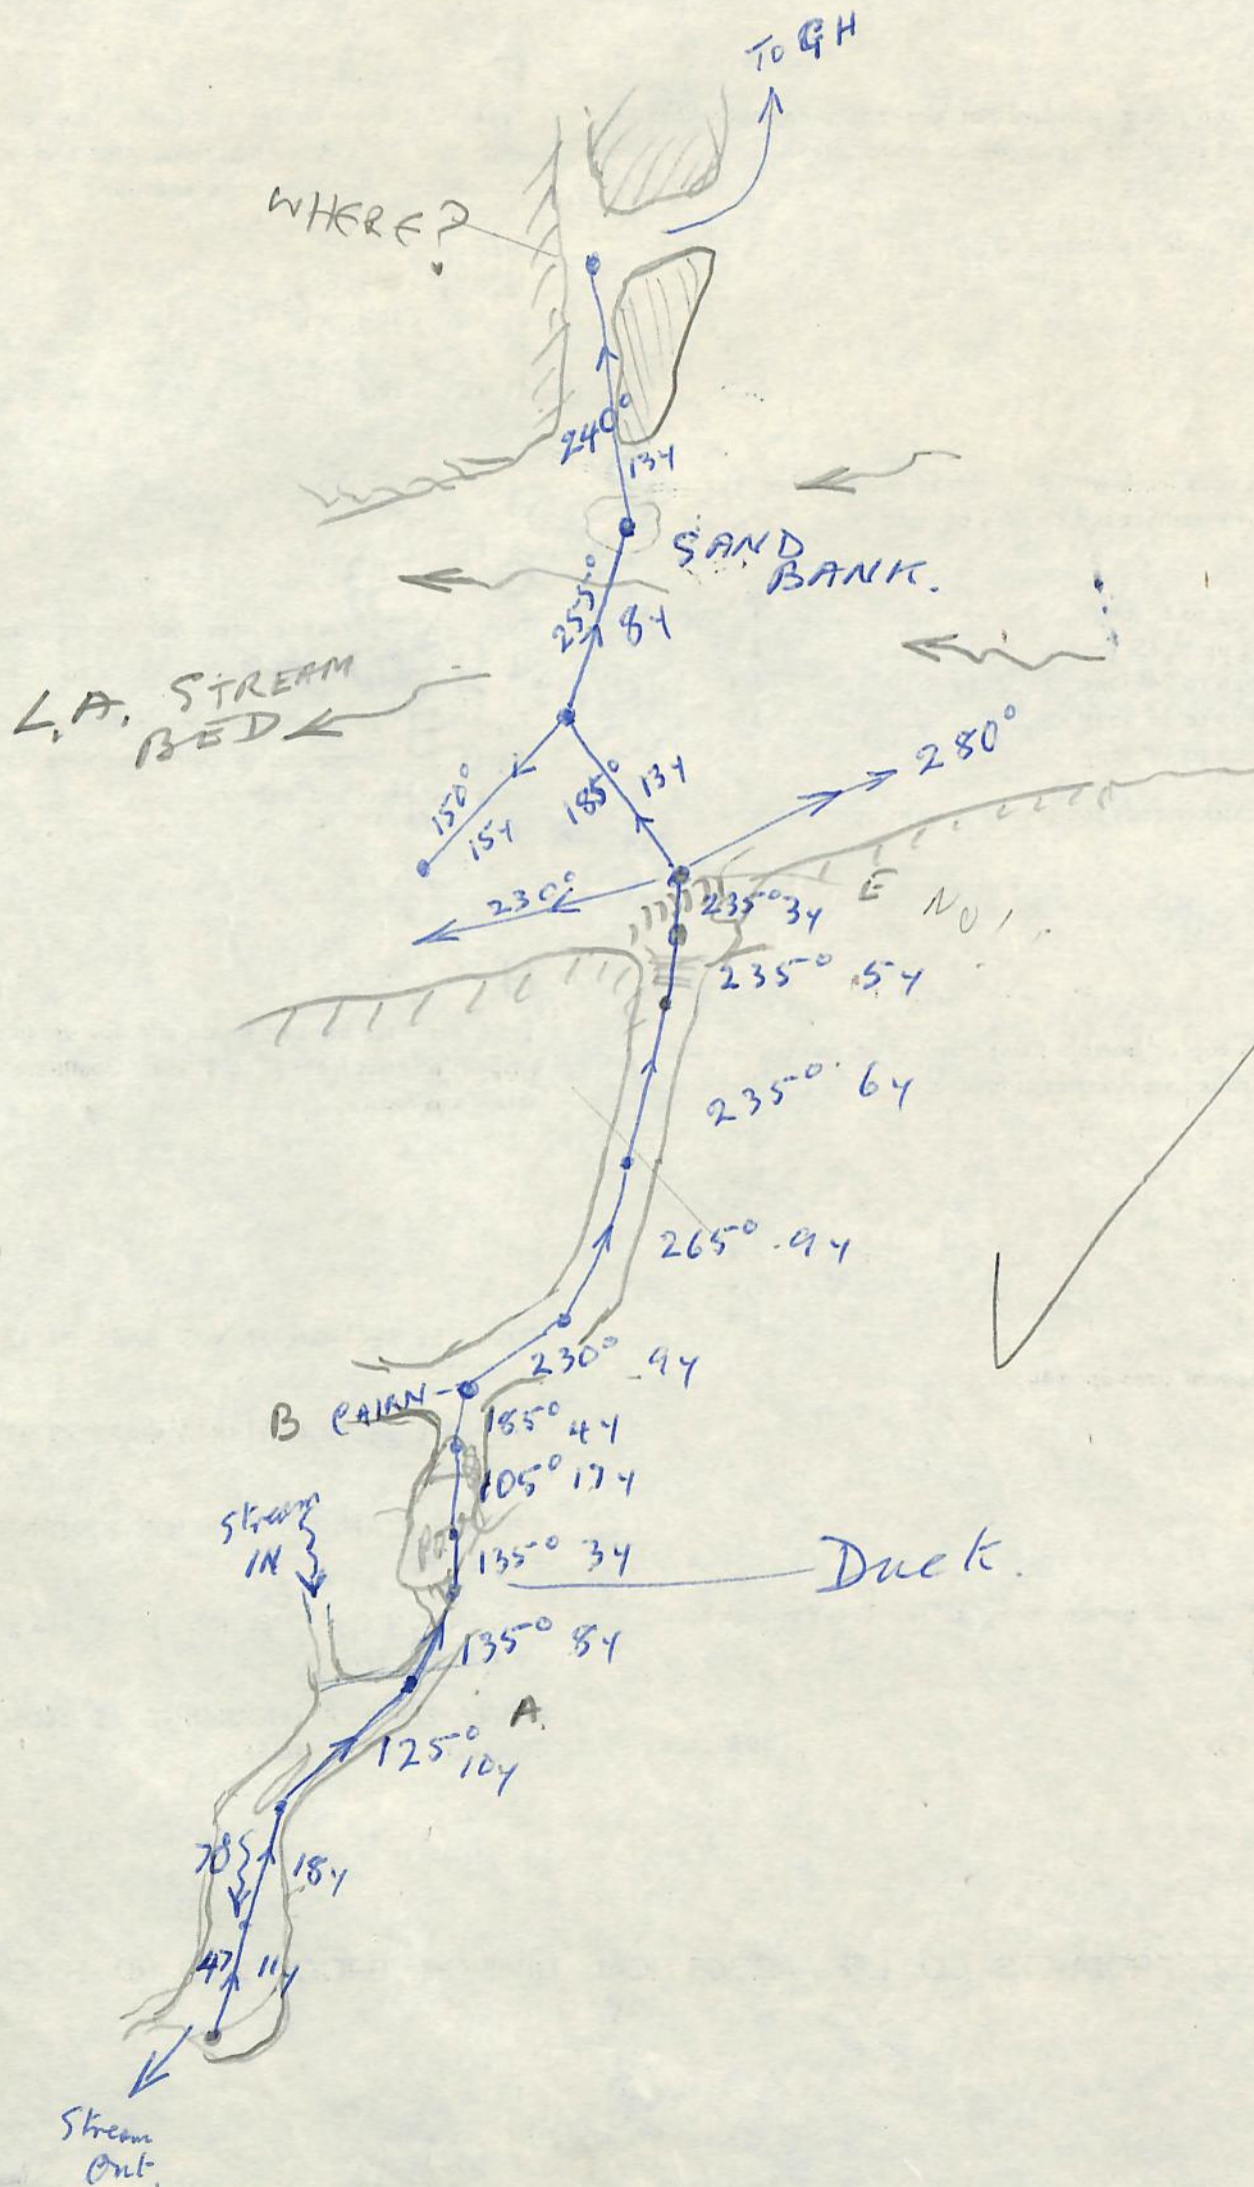 TO GH
WHERE?
240°
13y
SAND
BANK.
255°
8y
L.A. STREAM
BED
280°
150°
15y
185°
13y
230°
235° 3y
E
No 1
235° 5y
235° 6y
265° 9y
230° 9y
B CAIRN
185° 4y
105° 17y
Stream
IN
135° 3y
Duck.
135° 8y
A.
125°
10y
78
18y
47
11y
Stream
Out.